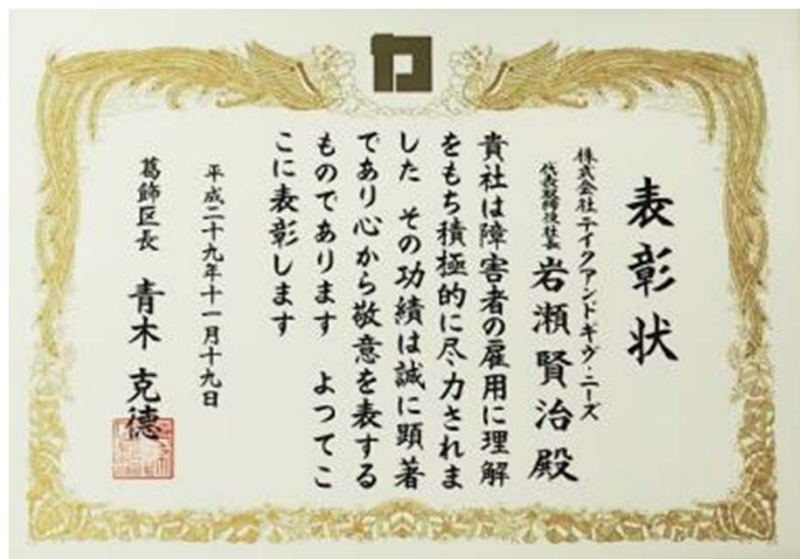 表彰状
株式会社テイクアンドギヴ・ニーズ
代表取締役社長
岩瀬賢治殿
貴社は障害者の雇用に理解
をもち積極的に尽力されま
した その功績は誠に顕著
であり心から敬意を表する
ものであります よつてこ
こに表彰します
平成二十九年十一月十九日
葛飾区長 青木克德